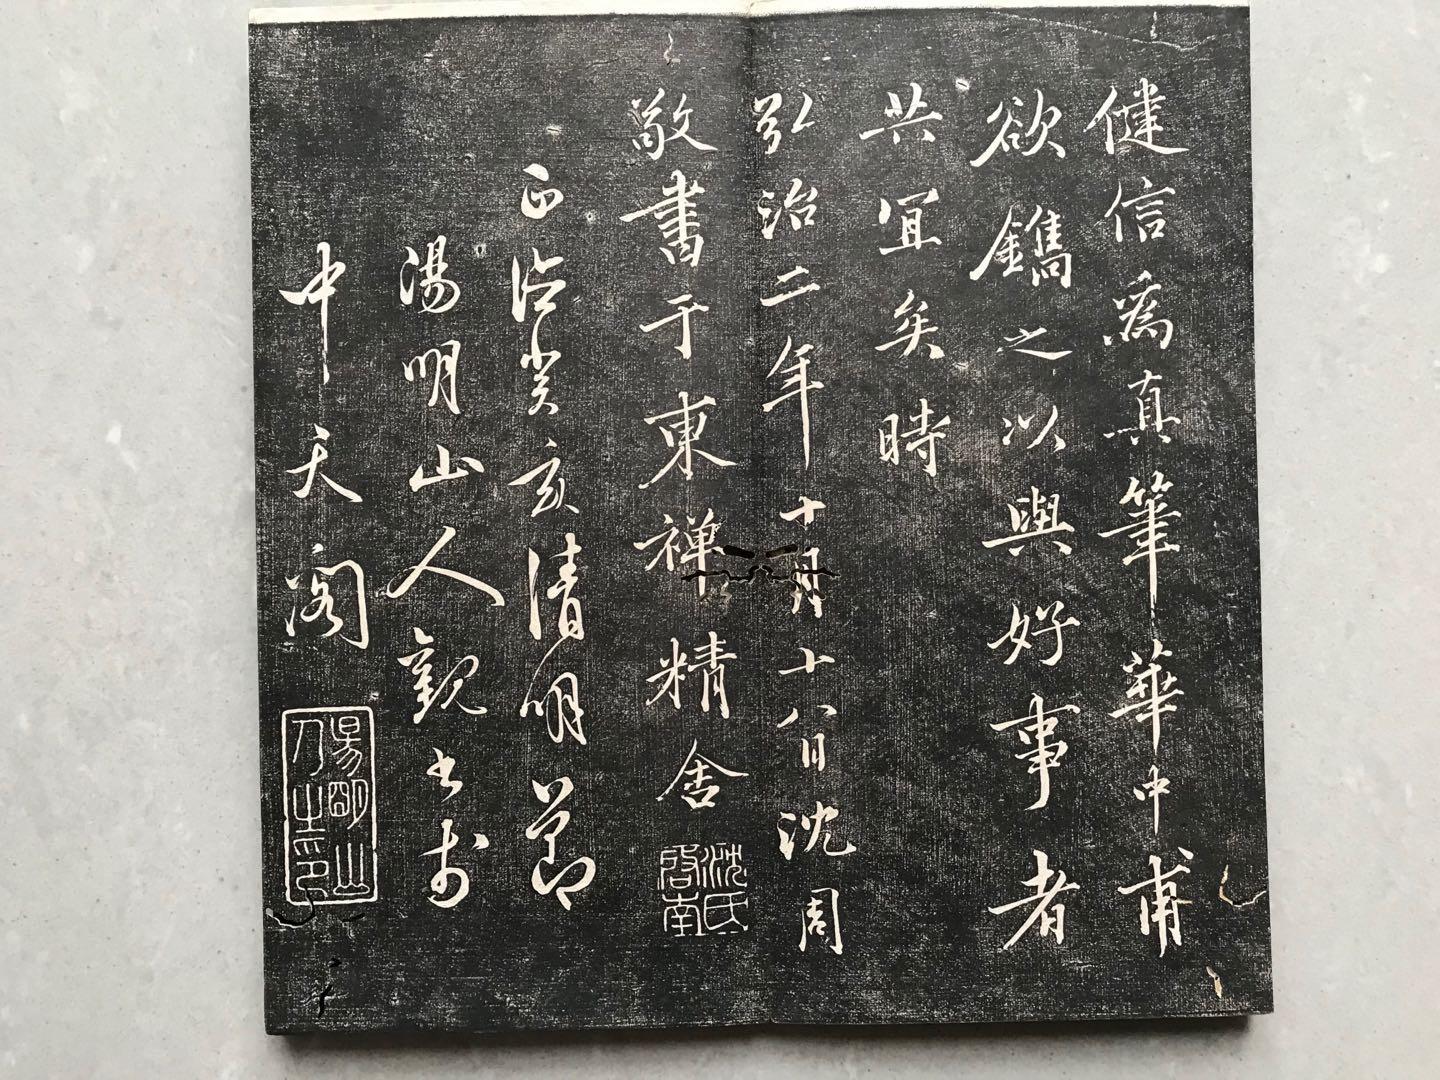 健信為真筆華中甫
欲鐫之以與好事者
共宜矣時
弘治二年十月十八日沈周
敬書于東禅精舍
沈氏啓南
正德癸亥清明節
湯明山人觀書於
中天閣
陽明山人之印